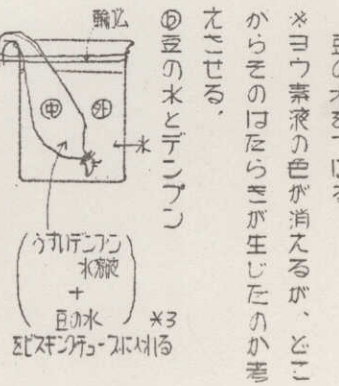 ※ヨウ素液の色が消えるが、どこ
からそのはたらきが生じたのか考
えさせる。
ⓑ豆の水とデンプン
輪ゴム
中
外
水
うすいデンプン
水溶液
+
豆の水
*3
をビスキングチューブに入れる